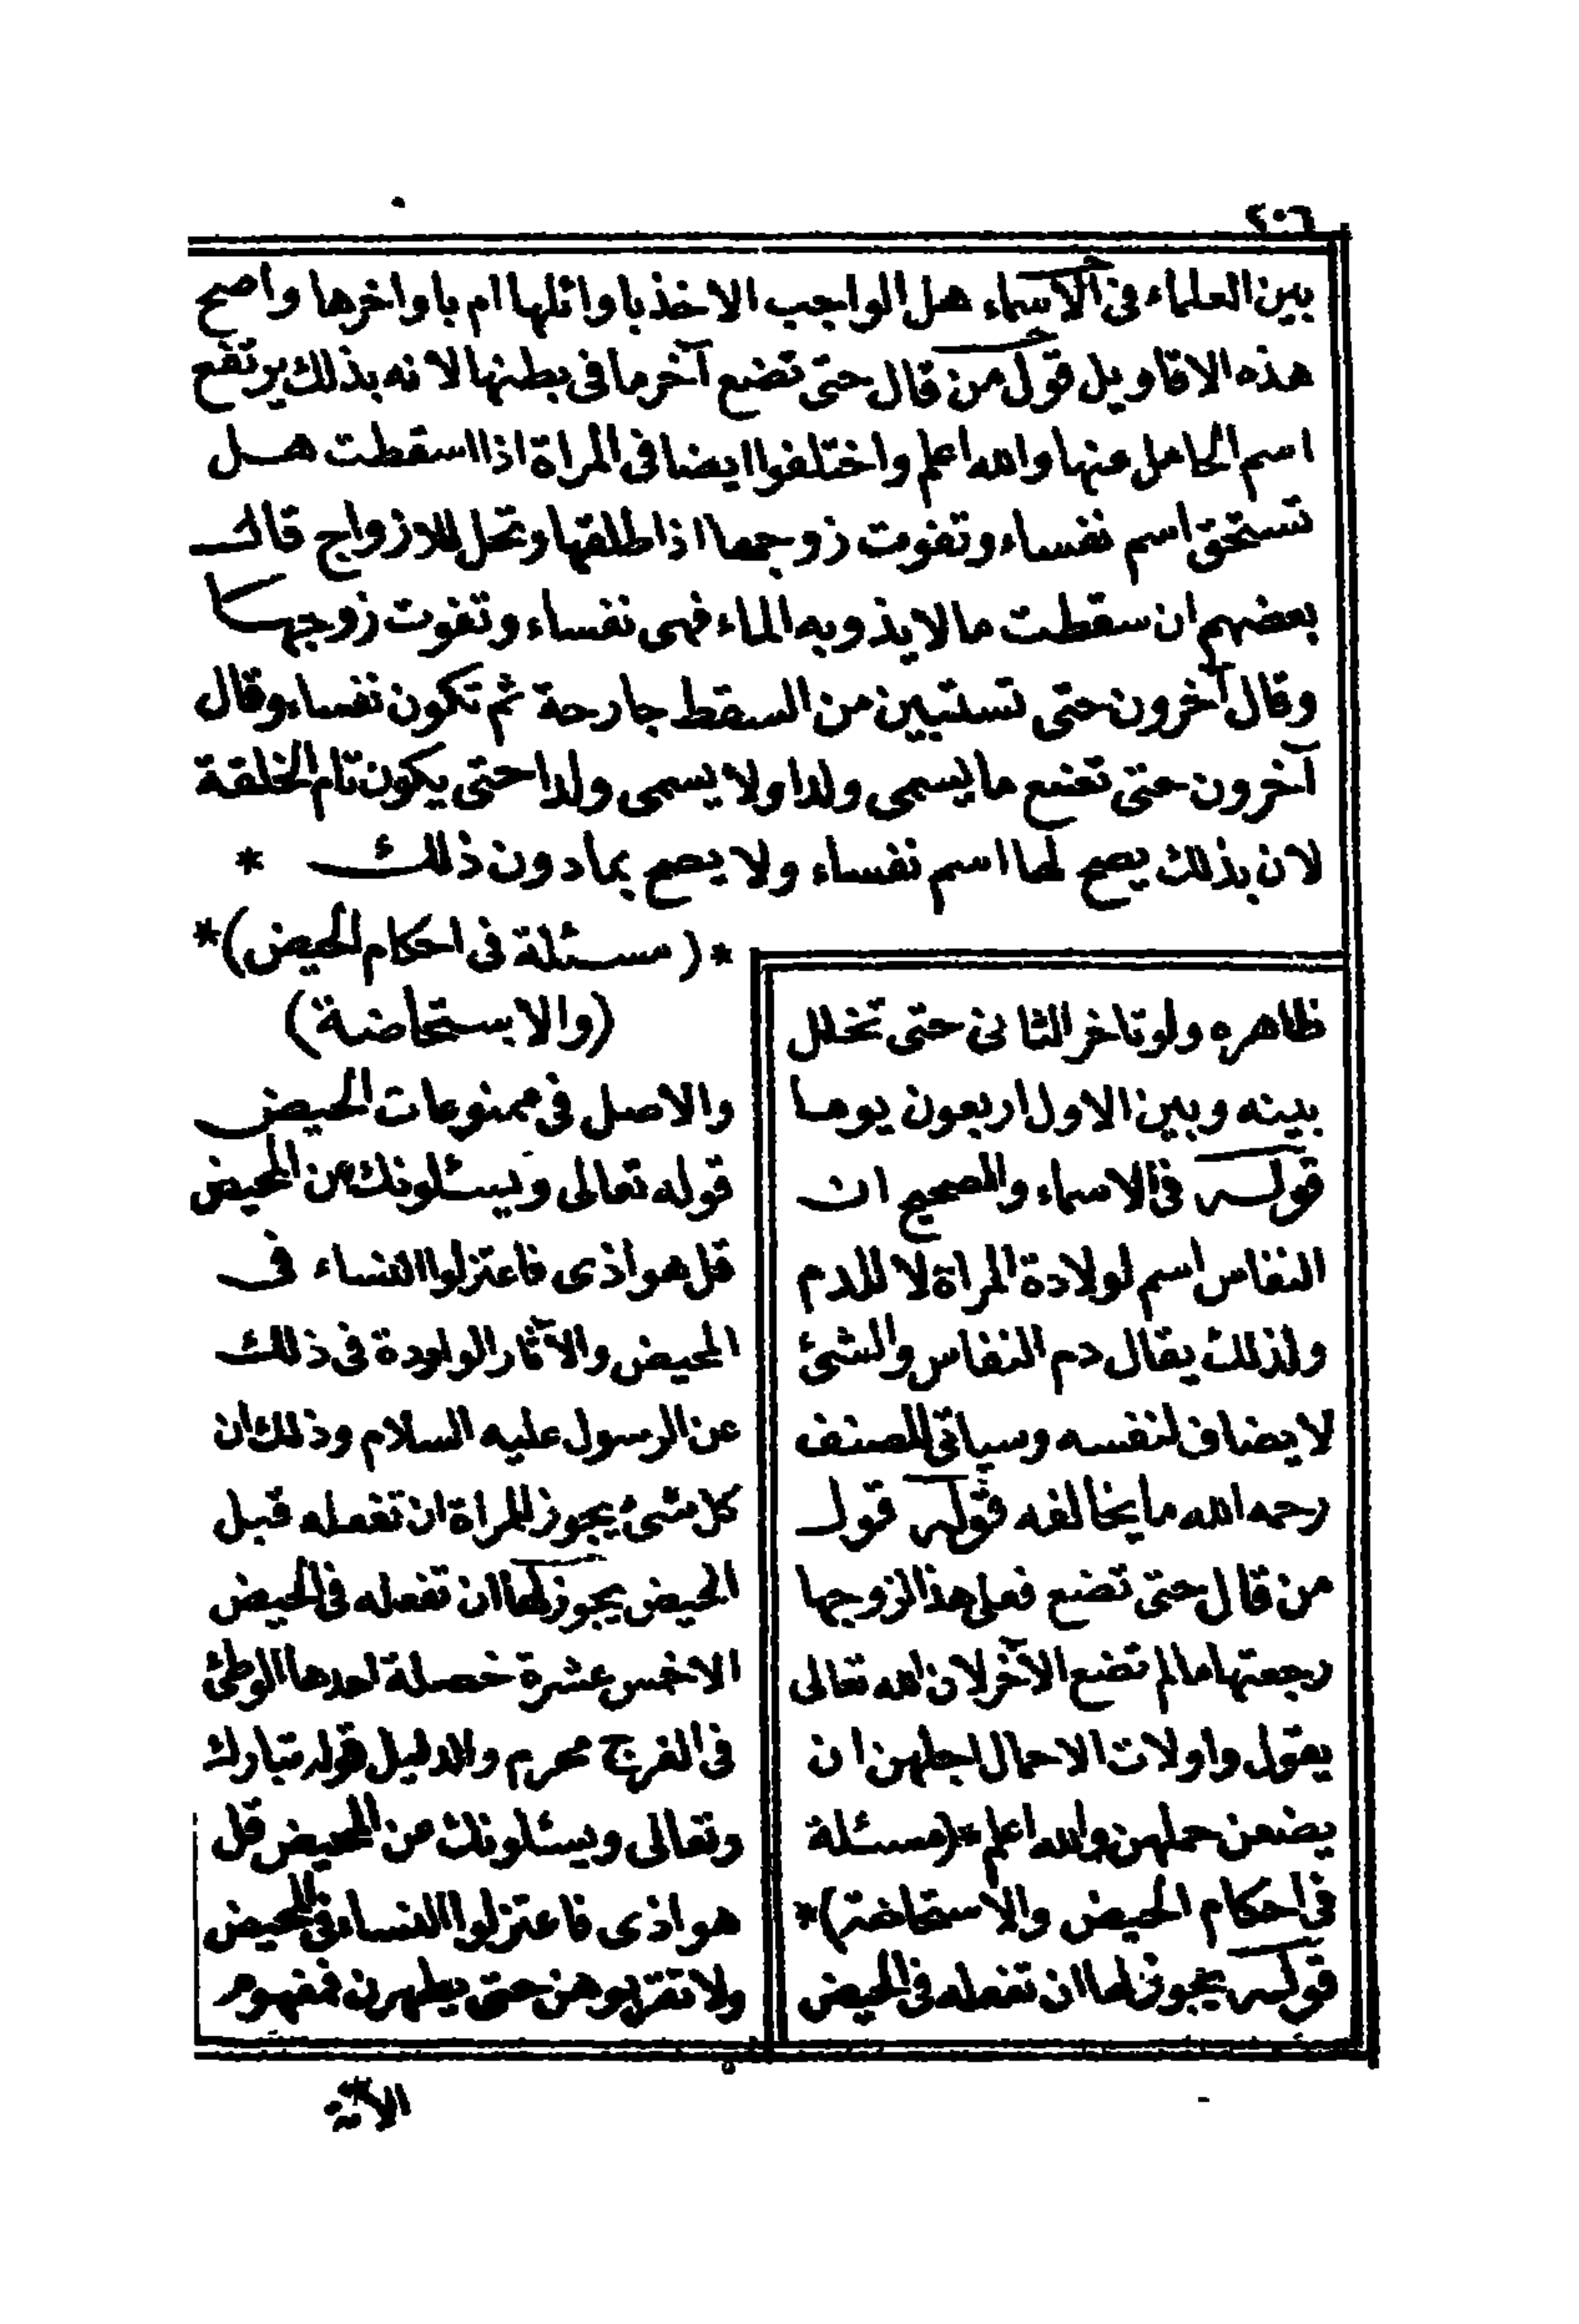 ٢٠٦
بين العلماء في الاسماء هل الواجب الاخذ باوائلها ام باواخرها واصح
هذه الاقاويل قول من قال حتى تضع آخر ما في بطنها لانه بذلك يرتفع
اسم الحامل عنها والله اعلم واختلفوا ايضا في المراة اذا اسقطت هل
تستحق اسم نفساء وتفوت زوجها اذا طلقها وتحل للازواج قال
بعضهم ان سقطت ما لا يذوبه الماء فهى نفساء وتفوت زوجها
وقال آخرون حتى تستبين من السقط جارحة ثم تكون نفساء وقال
آخرون حتى تضع ما يسمى ولدا ولا يسمى ولدا حتى يكون تام الخلقة
لان بذلك يصح لها اسم نفساء ولا يصح بما دون ذلك *
*(مسئلة في احكام الحيض)*
(والاستحاضة)
والاصل في ممنوعات الحيض
قوله تعالى ويسئلونك عن المحيض
قل هو اذى فاعتزلوا النساء في
المحيض والآثار الواردة في ذلك
عن الرسول عليه السلام وذلك ان
كل شئ يجوز للمراة ان تفعله قبل
الحيض يجوز لها ان تفعله في الحيض
الا خمس عشرة خصلة احدها الوطئ
في الفرج محرم والدليل قوله تبارك
وتعالى ويسئلونك عن المحيض قل
هو اذى فاعتزلوا النساء في المحيض
ولا تقربوهن حتى يطهرن فمفهوم
ظاهره ولو تاخر الثاني حتى تخلل
بينه وبين الاول اربعون يوما
قوله في الاسماء والصحيح ان
النفاس اسم لولادة المراة لا للدم
ولذلك يقال دم النفاس والشئ
لا يضاف لنفسه وسياتي للمصنف
رحمه الله ما يخالفه قوله قول
من قال حتى تضع فعلى هذا لزوجها
رجعتها ما لم تضع الآخر لان الله تعالى
يقول واولات الاحمال اجلهن ان
يضعن حملهن والله اعلم *(مسئلة
في احكام الحيض والاستحاضة)*
قوله يجوز لها ان تفعله في الحيض
الآية